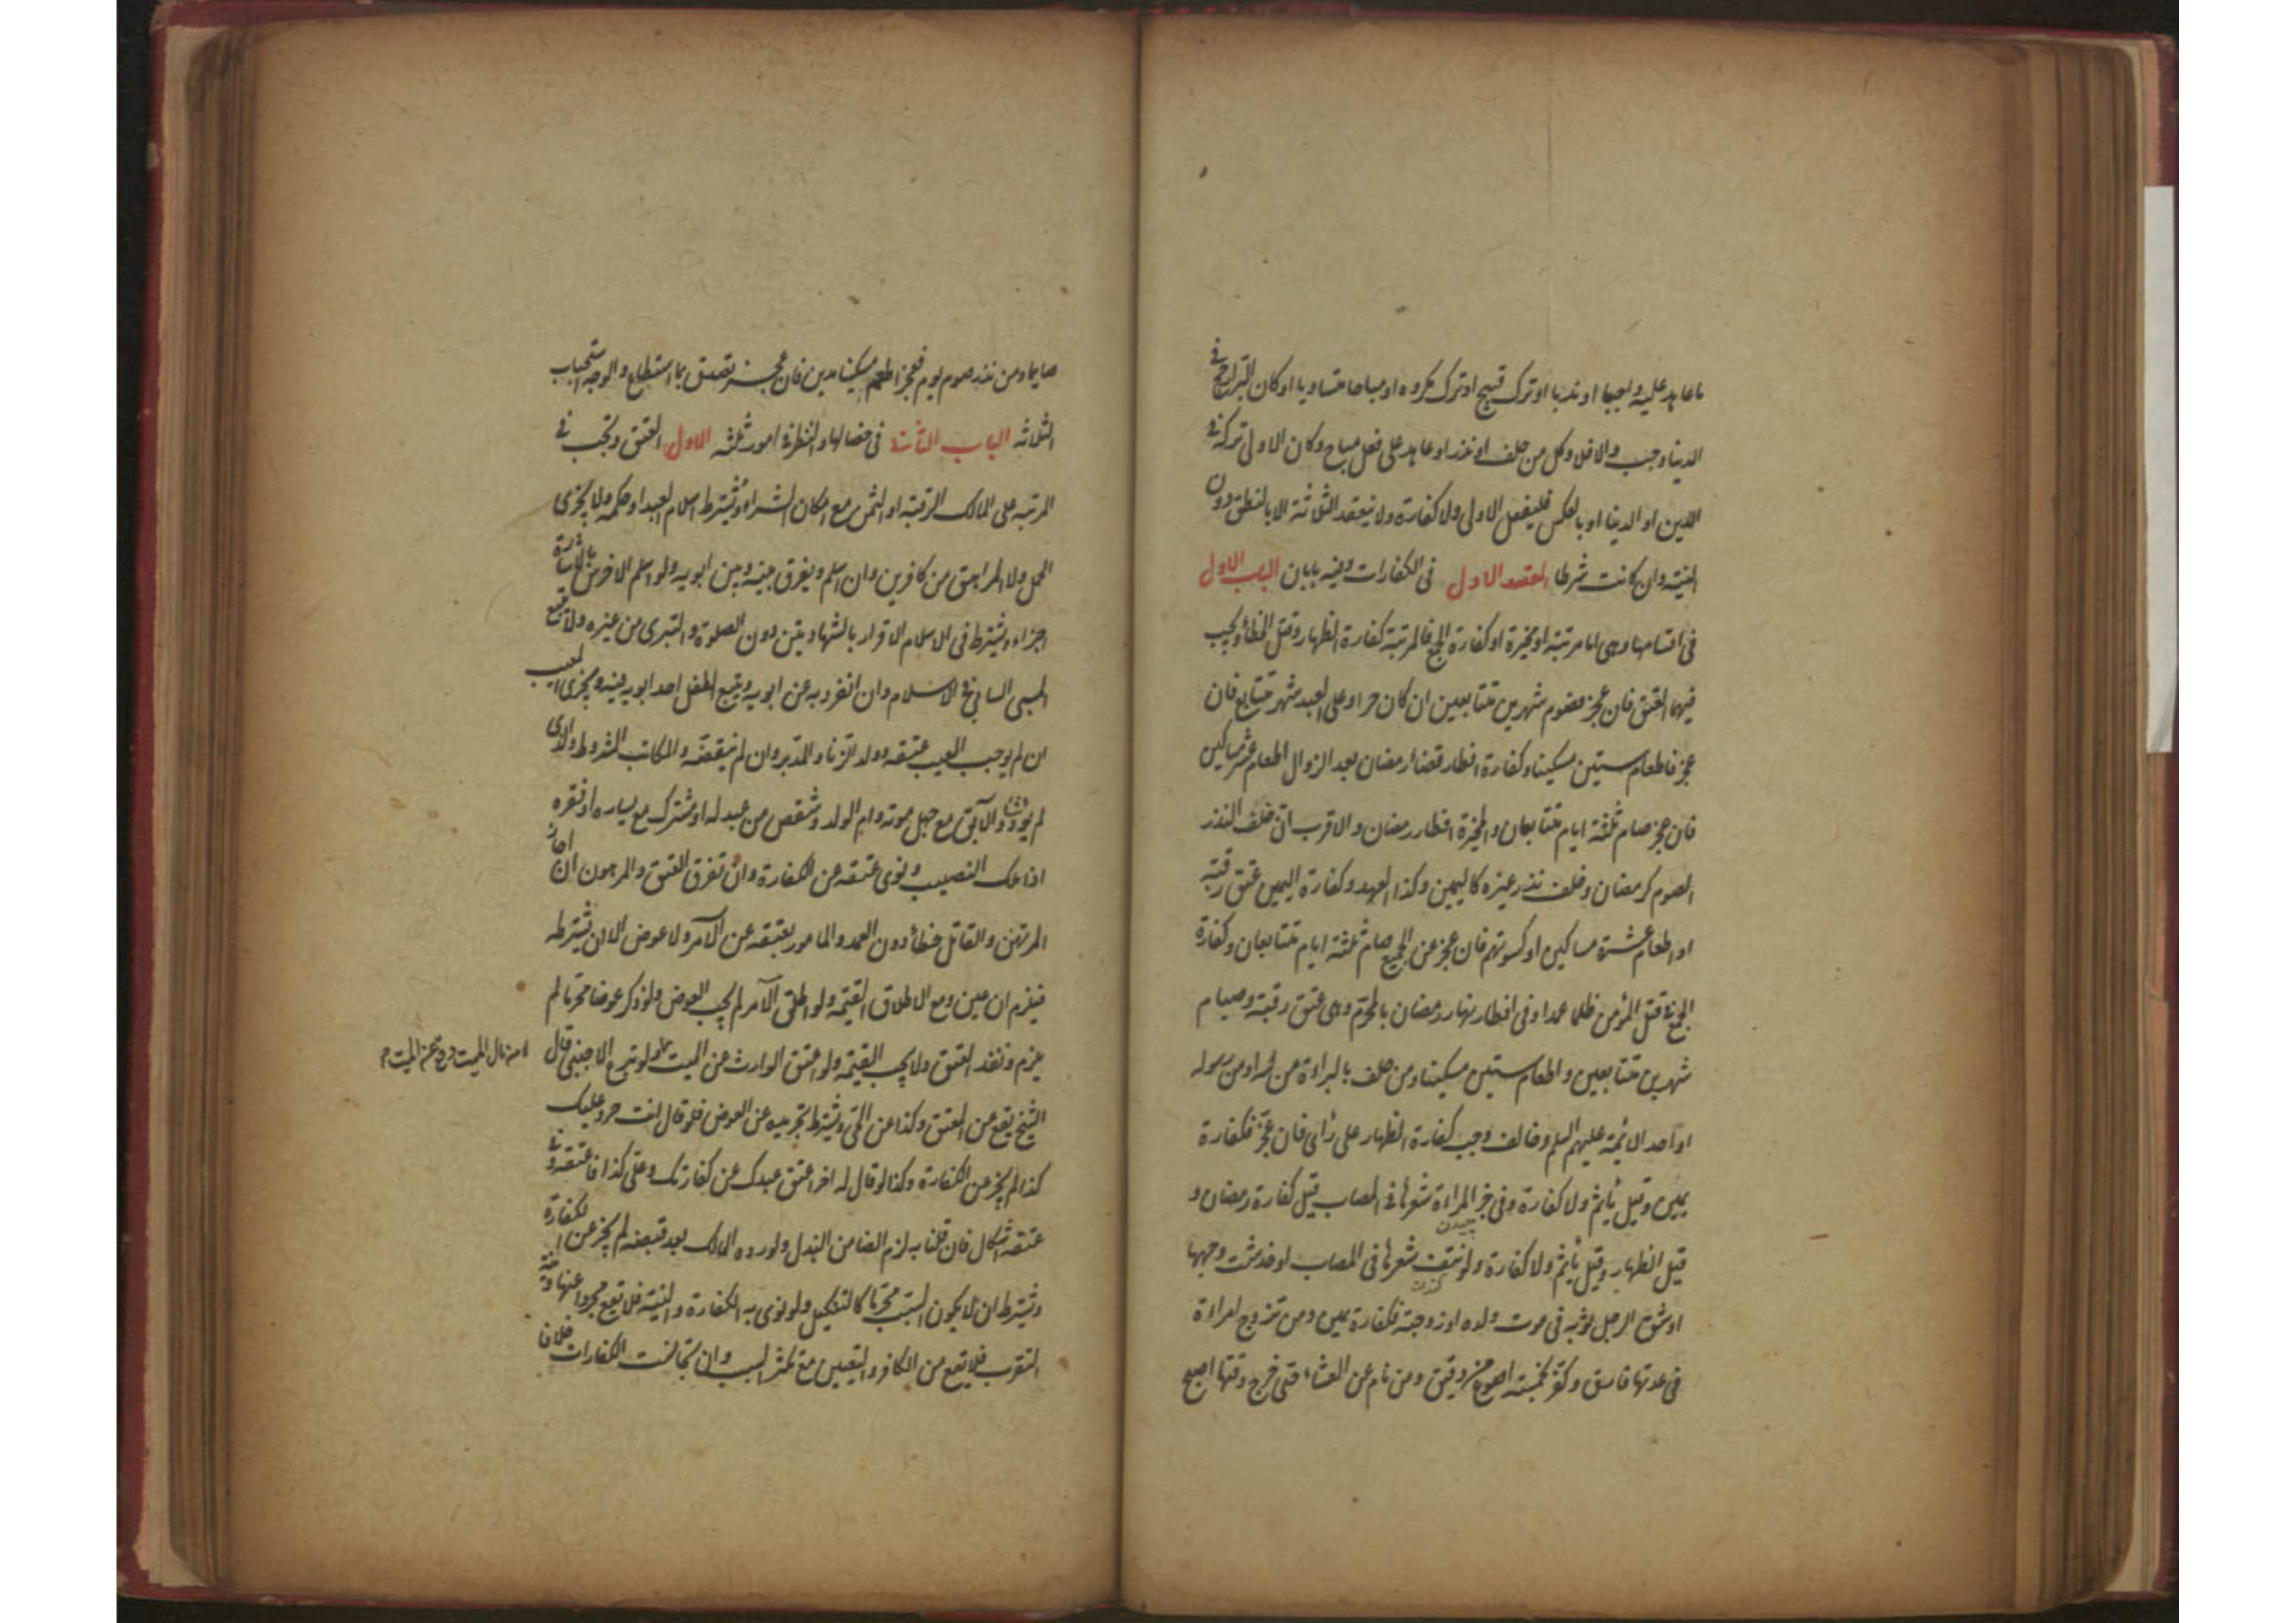 ما عاهد عليه واجبا او ندبا او ترك قبيح او ترك مكروه او مباحا متساويا او كان البر ارجح في
الدنيا وجب والا فلا وكل من حلف او نذر او عاهد على فعل مباح وكان الاولى تركه في
الدين او الدنيا او بالعكس فليفعل الاولى ولا كفارة ولا ينعقد الثلاثة الا بالنطق دون
النية وان كانت شرطا المقصد الاول في الكفارات وفيه بابان الباب الاول
في اقسامها وهي اما مرتبة او مخيرة او كفارة الجمع فالمرتبة كفارة الظهار وقتل الخطأ ويجب
فيهما العتق فان عجز فصوم شهرين متتابعين ان كان حرا وعلى العبد شهر متتابع فان
عجز فاطعام ستين مسكينا وكفارة افطار قضاء رمضان بعد الزوال اطعام عشر مساكين
فان عجز صام ثلثة ايام متتابعان والمخيرة افطار رمضان والاقرب ان خلف النذر
الصوم كرمضان وخلف نذر غيره كاليمين وكذا العهد وكفارة اليمين عتق رقبة
او اطعام عشرة مساكين او كسوتهم فان عجز عن الجميع صام ثلثة ايام متتابعان وكفارة
الجمع في قتل المؤمن ظلما عمدا وفي افطار نهار رمضان بالمحرم وهي عتق رقبة وصيام
شهرين متتابعين واطعام ستين مسكينا ومن حلف بالبراءة من الله او من رسوله
او احد الائمة عليهم السلم وخالف وجب كفارة الظهار على رأي فان عجز فكفارة
يمين وقيل يأثم ولا كفارة وفي جز المراءة شعرها في المصاب قيل كفارة رمضان و
قيل الظهار وقيل يأثم ولا كفارة ولو نتفت شعرها في المصاب او خدشت وجهها
او شق الرجل ثوبه في موت ولده او زوجته فكفارة يمين ومن تزوج امراءة
في عدتها فارق وكفر بخمسة اصوع من دقيق ومن نام عن العشاء حتى خرج وقتها اصبح
صايما ومن نذر صوم يوم فعجز اطعم مسكينا مدين فان عجز تصدق بما استطاع والوجه استحباب
الثلاثه الباب الثاني في خصالها والنظر في امور ثلثه الاول العتق ويجب في
المرتبه على المالك الرقبة او الثمن مع امكان الشراء ويشترط اسلام العبد او حكمه ولا يجزي
الحمل ولا المراهق من كافرين وان اسلم ويفرق بينه وبين ابويه ولو اسلم الاخرس بالاشارة
اجزاء ويشترط في الاسلام الاقرار بالشهادتين دون الصلوة والتبري من غيره ولا يتبع
المسبي السابي في الاسلام وان انفرد به عن ابويه ويتبع الطفل احد ابويه فيه ويجزي المعيب
ان لم يوجب العيب عتقه وولد الزنا والمدبر وان لم ينقضه والمكاتب المشروط والذي
لم يؤد شيئا والآبق مع جهل موته وام الولد وشقص من عبد له او مشترك مع يساره او فقره
اذا ملك النصيب ونوى عتقه عن الكفارة وان تفرق العتق والمرهون ان اجاز
المرتهن والقاتل خطأ دون العمد والمامور بعتقه عن الآمر ولا عوض الا ان يشترطه
فيلزم ان عين ومع الاطلاق القيمة ولو اطلق الآمر لم يجب العوض ولو ذكر عوضا محرما لم
يلزم ونفذ العتق ولا يجب القيمة ولو اعتق الوارث عن الميت صح ولو تبرع الاجنبي قال
الشيخ يقع عن المعتق وكذا عن الحي ويشترط تجريده عن العوض فلو قال انت حر وعليك
كذا لم يجز عن الكفارة وكذا لو قال له اخر اعتق عبدك عن كفارتك وعلي كذا فاعتقه وفي
عتقه اشكال فان قلنا به لزم الضامن البذل ولو رده المالك بعد قبضه لم يجز عن الكفارة
ويشترط ان لا يكون السبب محرما كالتنكيل ولو نوى به الكفارة والنية فلا يقع مجردا عنها ونية
التقرب فلا يقع من الكافر والتعيين مع تكثر السبب وان تجانست الكفارات خلافا